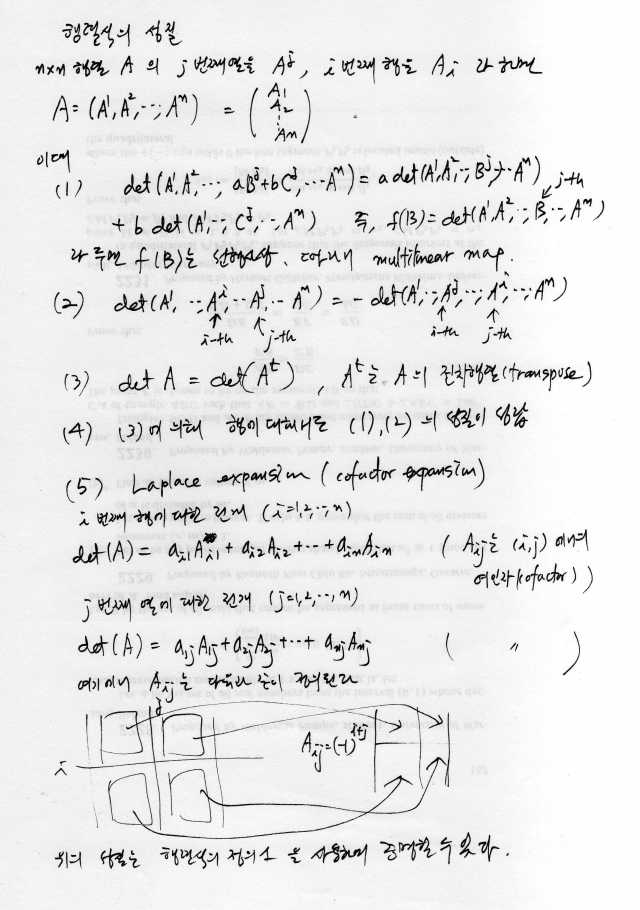 행렬식의 성질
n×n 행렬 A 의 j 번째열을 A^j , i 번째 행을 A_i 라 하면
A = (A^1, A^2, ⋯, A^n) = ( A_1 A_2 ⋮ A_n ) .
이때
(1) det(A^1, A^2, ⋯, aB^j+bC^j, ⋯ A^n) = a det(A^1, A^2, ⋯, B^j, ⋯ A^n)
j-th
+ b det(A^1, ⋯ C^j, ⋯, A^n) 즉, f(B) = det(A^1, A^2, ⋯ B, ⋯, A^n)
라 두면 f(B)는 선형사상, multilinear map.
(2) det(A^1, ⋯ A^i, ⋯ A^j, ⋯ A^n) = - det(A^1, ⋯, A^j, ⋯, A^i, ⋯, A^n)
i-th j-th i-th j-th
(3) det A = det(A^t) , A^t는 A 의 전치행렬(transpose)
(4) (3)에 의해 행에 대해서도 (1),(2) 의 성질이 성립
(5) Laplace expansion (cofactor expansion)
i 번째 행에 대한 전개 (i=1,2,⋯,n)
det(A) = a_i1 A_i1 + a_i2 A_i2 + ⋯ + a_in A_in ( A_ij는 (i,j) 에서의
여인자(cofactor) )
j 번째 열에 대한 전개 (j=1,2,⋯,n)
det(A) = a_1j A_1j + a_2j A_2j + ⋯ + a_nj A_nj ( 〃 )
여기서 A_ij는 다음과 같이 정의된다
j
i
A_ij = (-1)^i+j
위의 성질은 행렬식의 정의 을 사용하여 증명할 수 있다.